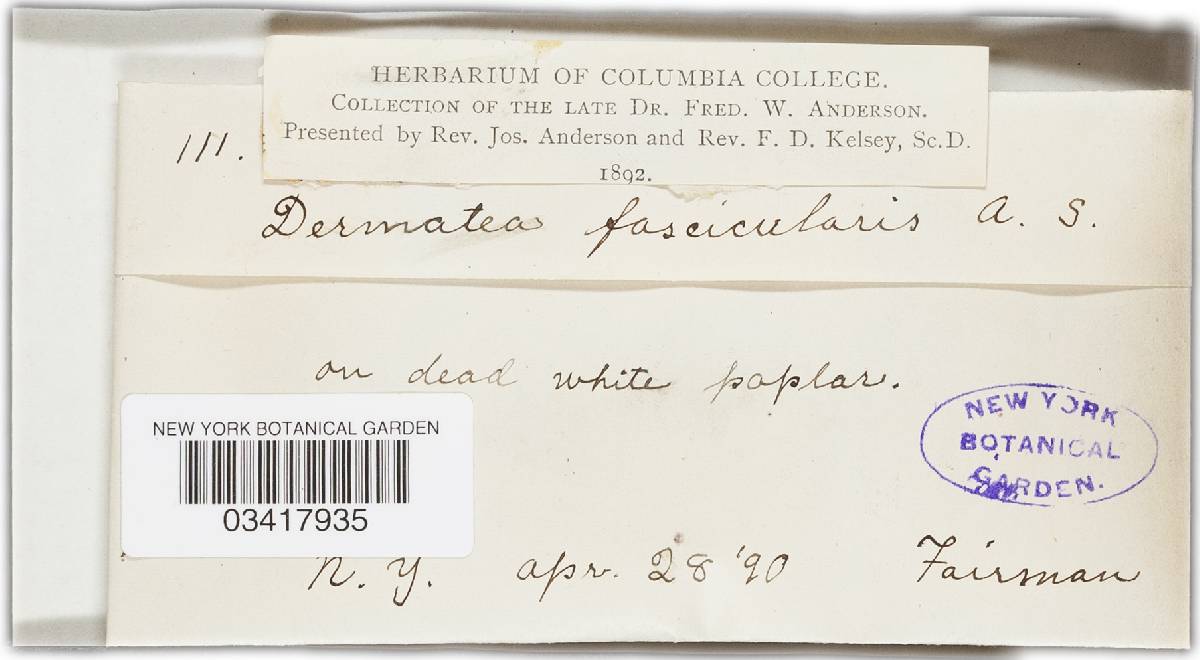 HERBARIUM OF COLUMBIA COLLEGE.
COLLECTION OF THE LATE DR. FRED. W. ANDERSON.
Presented by Rev. Jos. Anderson and Rev. F. D. Kelsey, Sc.D.
1892.
111.
Dermatea fascicularis A. S.
on dead white poplar.
NEW YORK BOTANICAL GARDEN
03417935
NEW YORK
BOTANICAL
GARDEN.
N. Y. apr. 28 '90 Fairman